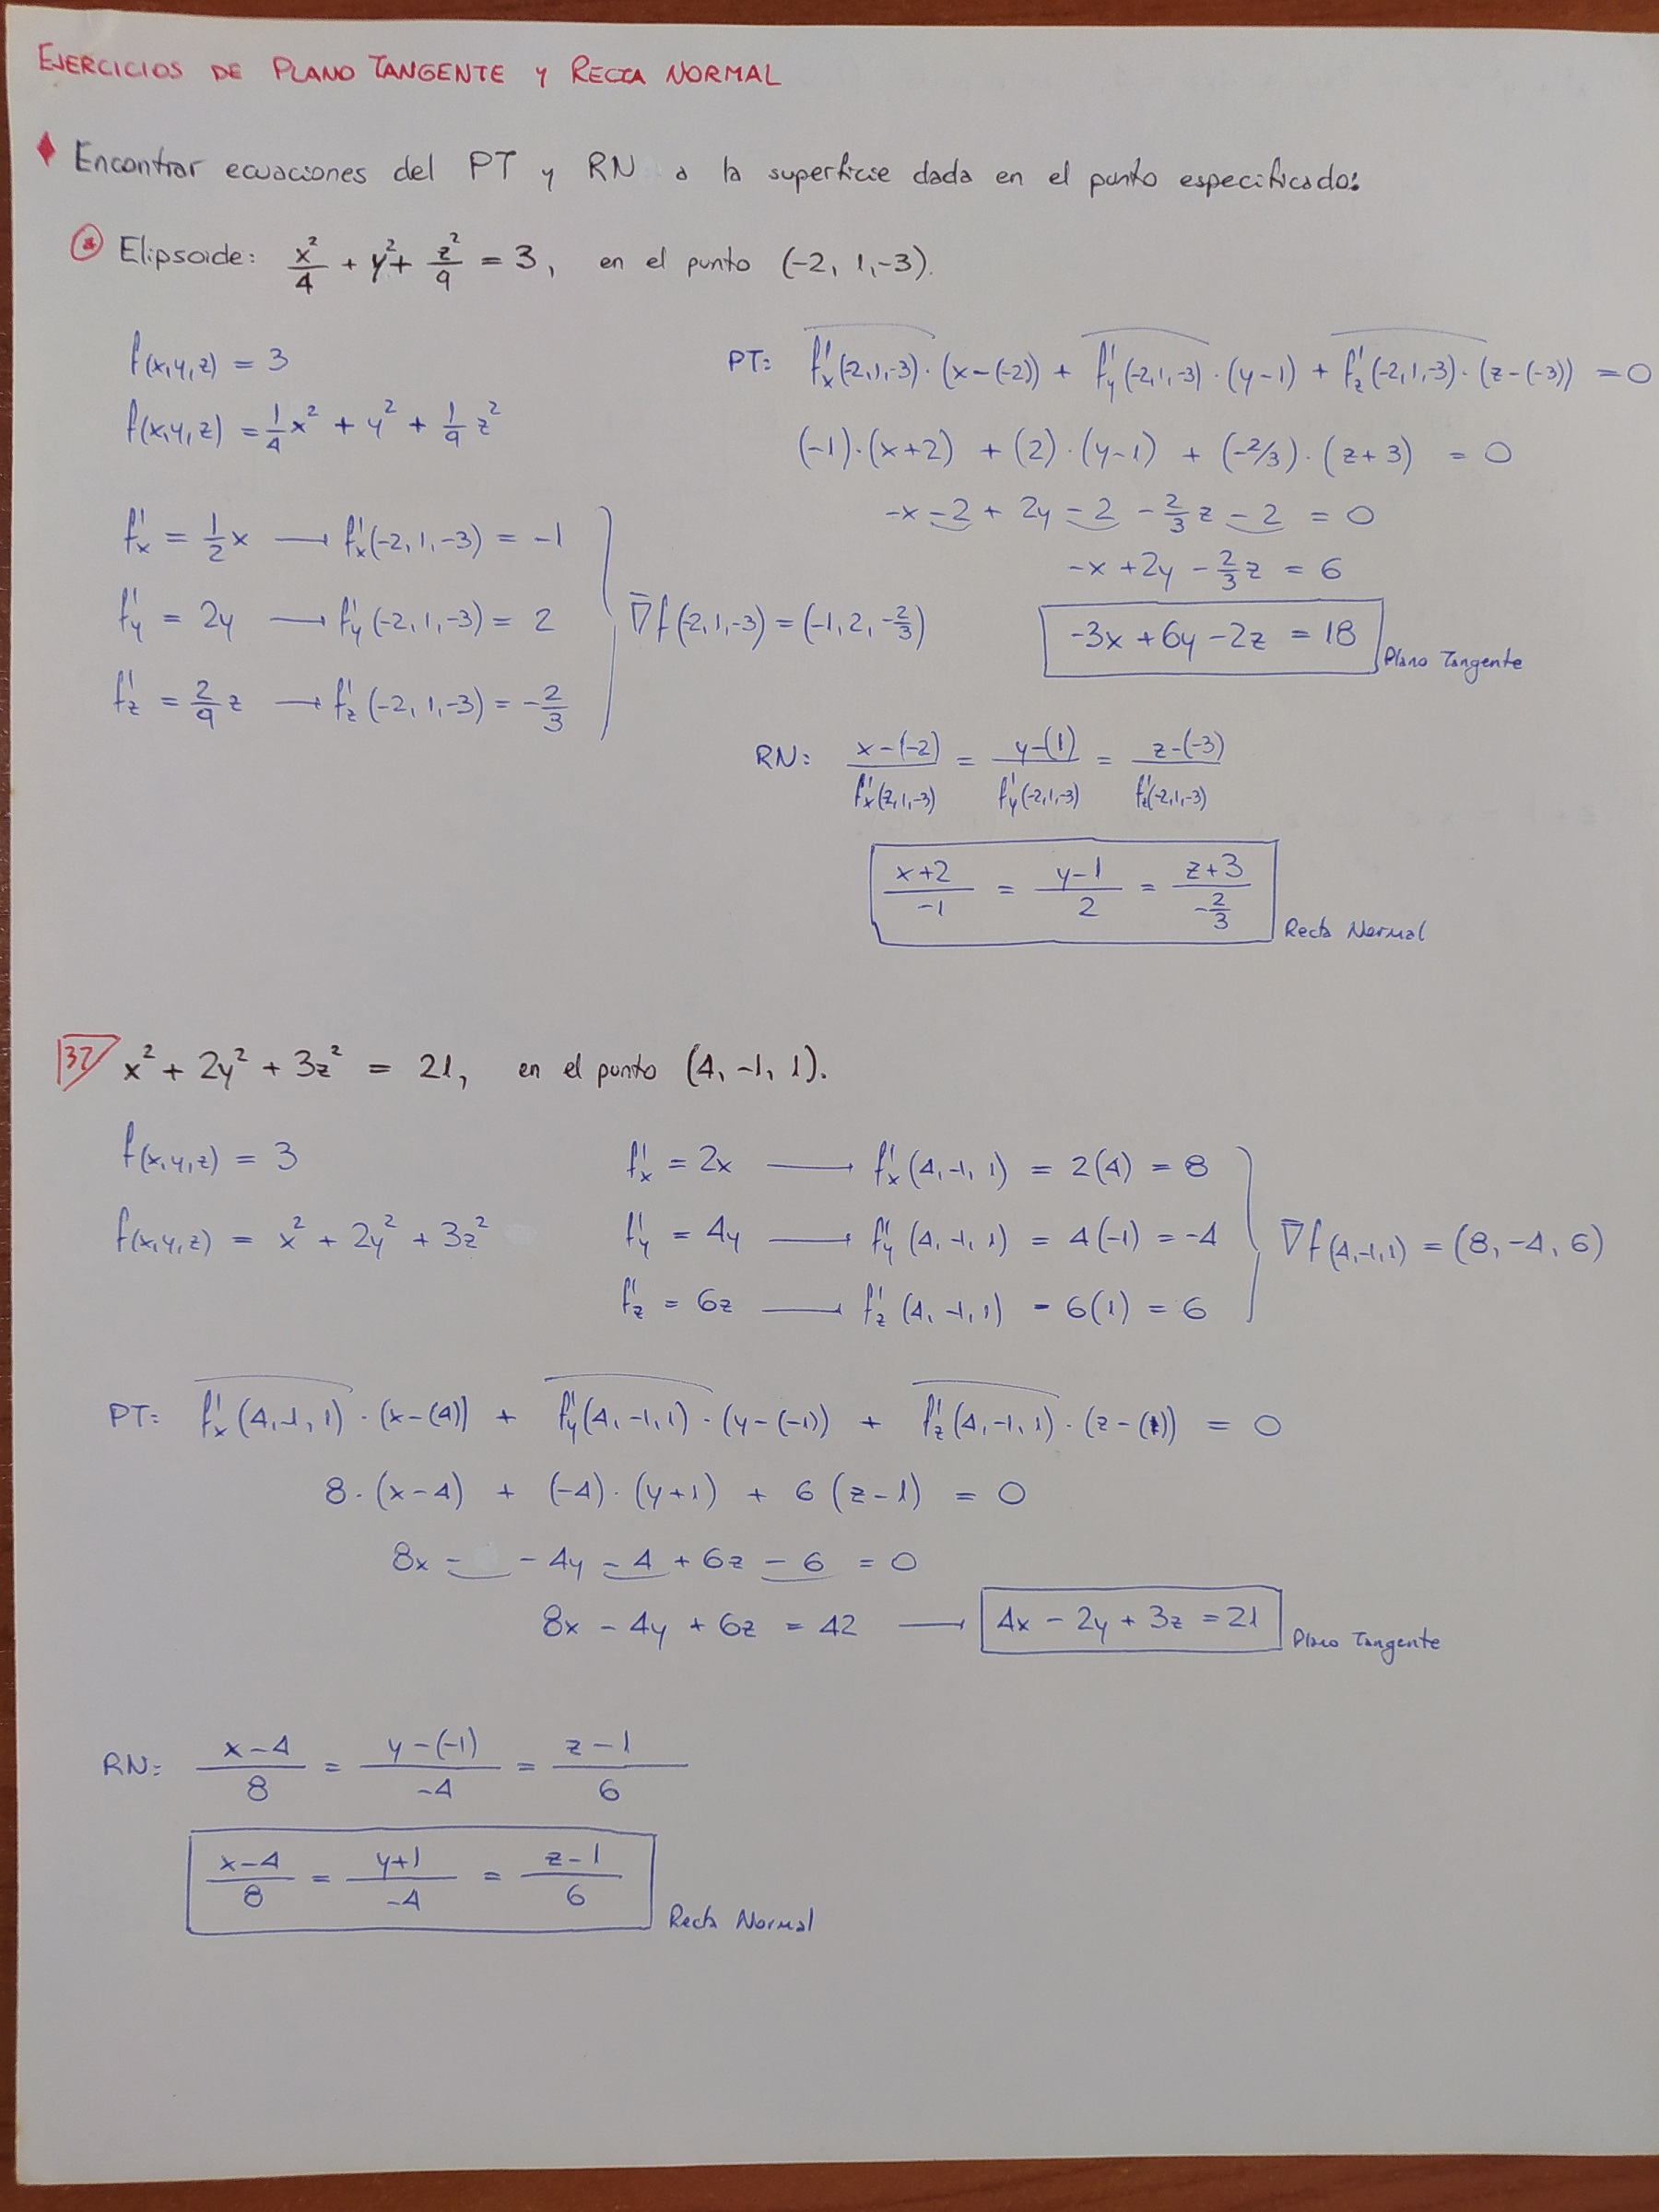 EJERCICIOS DE PLANO TANGENTE Y RECTA NORMAL
♦ Encontrar ecuaciones del PT y RN a la superficie dada en el punto especificado:
* Elipsoide: x²/4 + y² + z²/9 = 3, en el punto (-2, 1, -3).
f(x,y,z) = 3
f(x,y,z) = 1/4 x² + y² + 1/9 z²
f'x = 1/2 x → f'x(-2, 1, -3) = -1
f'y = 2y → f'y(-2, 1, -3) = 2
f'z = 2/9 z → f'z(-2, 1, -3) = -2/3
∇f(-2,1,-3) = (-1, 2, -2/3)
PT: f'x(-2,1,-3)·(x-(-2)) + f'y(-2,1,-3)·(y-1) + f'z(-2,1,-3)·(z-(-3)) = 0
(-1)·(x+2) + (2)·(y-1) + (-2/3)·(z+3) = 0
-x - 2 + 2y - 2 - 2/3 z - 2 = 0
-x + 2y - 2/3 z = 6
-3x + 6y - 2z = 18 Plano Tangente
RN: x-(-2)/f'x(2,1,-3) = y-(1)/f'y(-2,1,-3) = z-(-3)/f'z(-2,1,-3)
x+2/-1 = y-1/2 = z+3/-2/3 Recta Normal
37 x² + 2y² + 3z² = 21, en el punto (4, -1, 1).
f(x,y,z) = 3
f(x,y,z) = x² + 2y² + 3z²
f'x = 2x → f'x(4, -1, 1) = 2(4) = 8
f'y = 4y → f'y(4, -1, 1) = 4(-1) = -4
f'z = 6z → f'z(4, -1, 1) = 6(1) = 6
∇f(4,-1,1) = (8, -4, 6)
PT: f'x(4,-1,1)·(x-(4)) + f'y(4,-1,1)·(y-(-1)) + f'z(4,-1,1)·(z-(1)) = 0
8·(x-4) + (-4)·(y+1) + 6(z-1) = 0
8x - - 4y - 4 + 6z - 6 = 0
8x - 4y + 6z = 42 → 4x - 2y + 3z = 21 Plano Tangente
RN: x-4/8 = y-(-1)/-4 = z-1/6
x-4/8 = y+1/-4 = z-1/6 Recta Normal